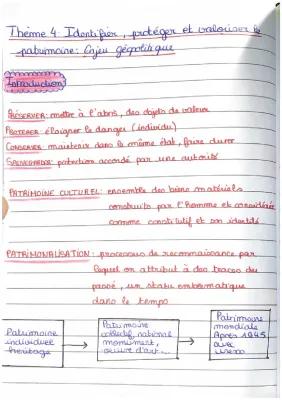 Thème 4: Identifier, protéger et valoriser le
patrimoine: Enjeu géopolitique
Introduction
PRÉSERVER: mettre à l'abris, des objets de valeur
PROTÉGER: éloigner le danger (individu)
CONSERVER: maintenir dans le même état, faire durer
SAUVEGARDE: protection accordé par une autorité
PATRIMOINE CULTUREL: ensemble des biens matériels
construits par l'Homme et considérée
comme constitutif et son identité
PATRIMONIALISATION: processus de reconnaissance par
lequel on attribut à des traces du
passé, un statu emblématique
dans le temps
Patrimoine
individuel
héritage
Patrimoine
collectif, national
monument,
oeuvre d'art...
Patrimoine
mondiale
Après 1945
avec
unesco